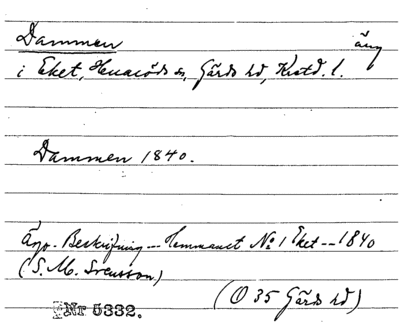 Dammen äng
i Eket, Huaröds sn, Gärds hd, Kristd. l.
Dammen 1840.
Ägo-Beskrifning -- Hemmanet No 1 Eket -- 1840
(S. M. Svensson)
(O 35 Gärds hd)
Nr 5332.